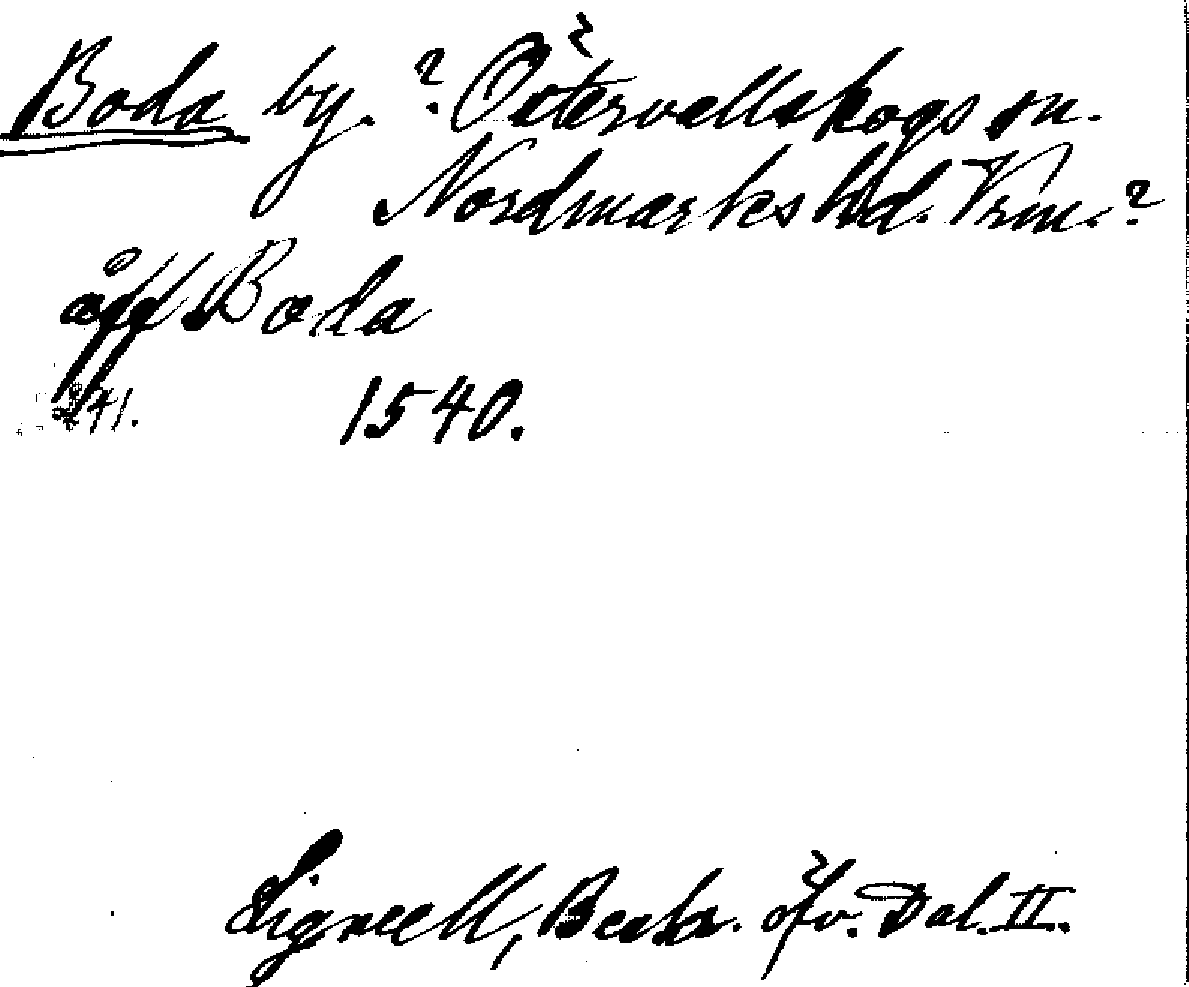 Boda by. ? Östervallskogs sn.
Nordmarks hd. Vrm. ?
åff Boda
241. 1540.
Lignell, Beskr. öfv. Dal. II.